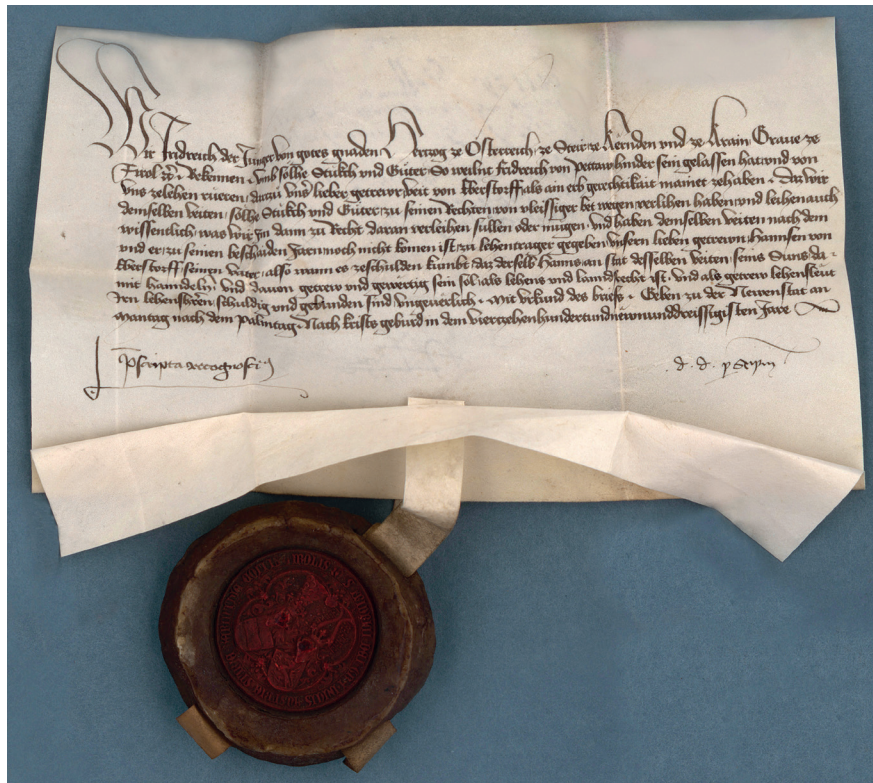 Wir Fridreich der Jünger von gotes gnaden Hertzog ze Österreich ze Steir ze Kërnden und ze Krain Graue ze
Tirol etc. Bekennen. Umb solhe Stükch und Güter So weilnt Fridreich von Pettaw hinder sein gelassen hat und von
uns zelehen rüeren, dartzu unser lieber getrewr, veit von Eberstorff als ain erb gerechtikait mainet zehaben. Daz wir
demselben veiten, solhe Stükch und Güter, zu seinen Rechten von vleissiger bet wegen, verlihen haben, und leihen auch
wissentlich, was wir Im dann zu Recht daran verleihen süllen oder mügen, und haben demselben veiten nach dem
und er, zu seinen beschaiden Jaren noch nicht komen ist, zu lehentrager gegeben unsern lieben getrewn, Hannsen von
Eberstorff seinen vater, also wann es zeschulden kumbt, daz derselb Hanns, an stat desselben veiten, seins Suns da-
mit hanndeln, und dauon getrew und gewertig sein sol, als lehens und landsrecht ist, und als getrew lehensleut
Iren lehensherren schuldig und gebunden sind ungeuerlich. Mit urkund des briefs. Geben zu der Newenstat an
Mantag nach dem Palmtag. Nach krists geburd in dem viertzehenhundert und newnunddreissigisten Jare
p̄scripta recognosci
d. d. p